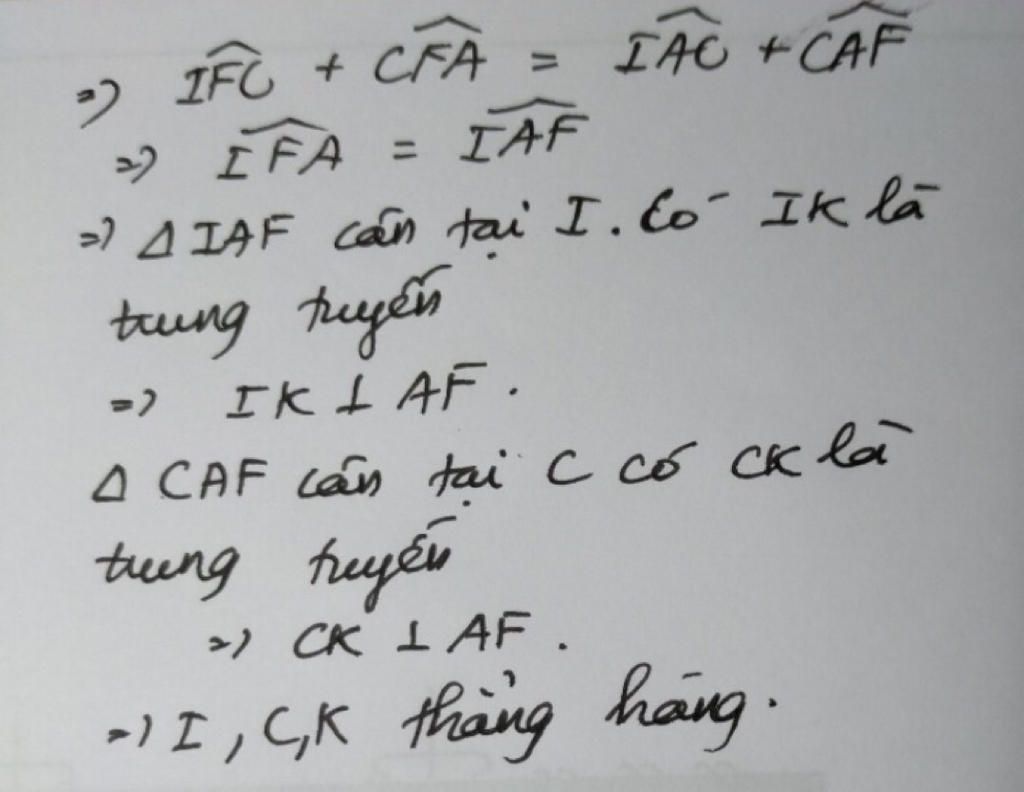 => \widehat{IFC} + \widehat{CFA} = \widehat{IAC} + \widehat{CAF}
=> \widehat{IFA} = \widehat{IAF}
=> Δ IAF cân tại I. Có IK là
trung tuyến
=> IK ⊥ AF.
Δ CAF cân tại C có CK là
trung tuyến
=> CK ⊥ AF.
=> I, C, K thẳng hàng.